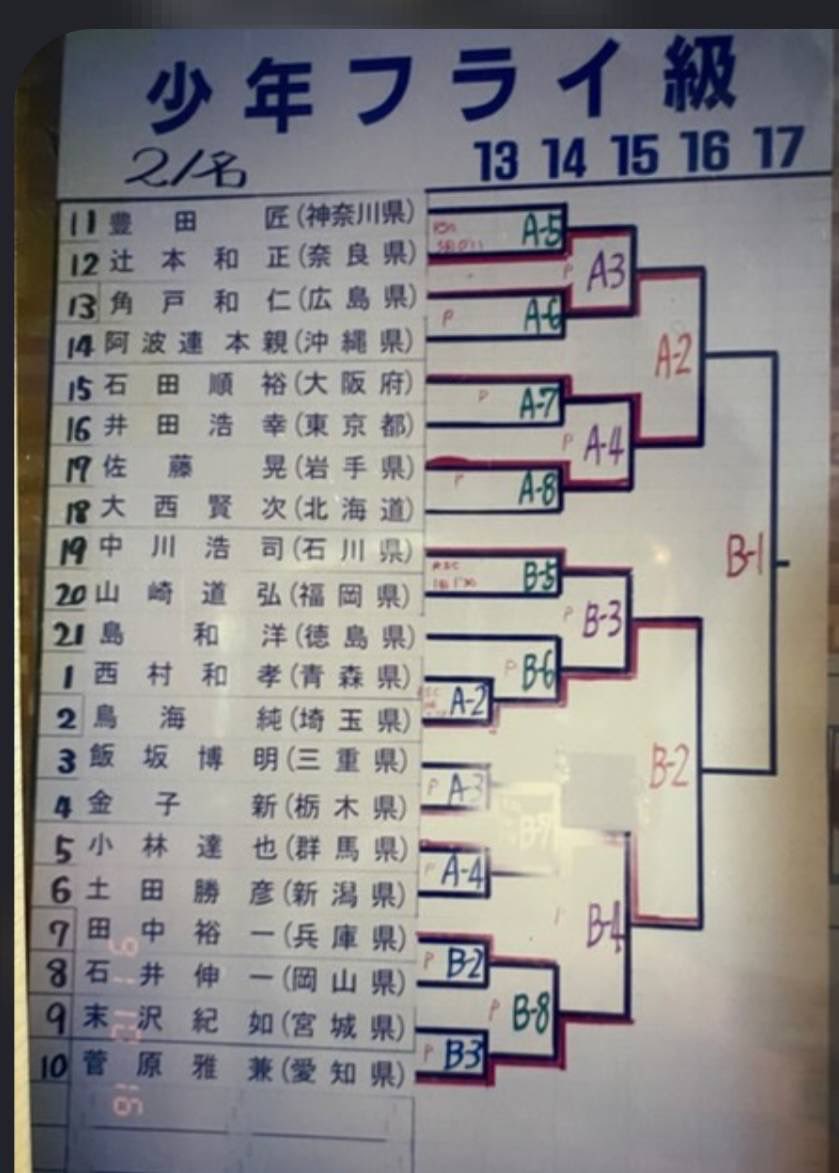 少年フライ級
21名
13 14 15 16 17
11 豊田 匠(神奈川県)
12 辻本和正(奈良県)
13 角戸和仁(広島県)
14 阿波連本親(沖縄県)
15 石田順裕(大阪府)
16 井田浩幸(東京都)
17 佐藤 晃(岩手県)
18 大西賢次(北海道)
19 中川浩司(石川県)
20 山崎道弘(福岡県)
21 島 和洋(徳島県)
1 西村和孝(青森県)
2 鳥海 純(埼玉県)
3 飯坂博明(三重県)
4 金子 新(栃木県)
5 小林達也(群馬県)
6 土田勝彦(新潟県)
7 田中裕一(兵庫県)
8 石井伸一(岡山県)
9 末沢紀如(宮城県)
10 菅原雅兼(愛知県)
A-5
A-6
A-7
A-8
B-5
B-6
A-2
A-3
A-4
B-7
B-2
B-3
B-8
A3
A-4
B-3
B-4
A-2
B-2
B-1
P
P
P
P
P
P
P
P
P
P
P
P
P
RSC